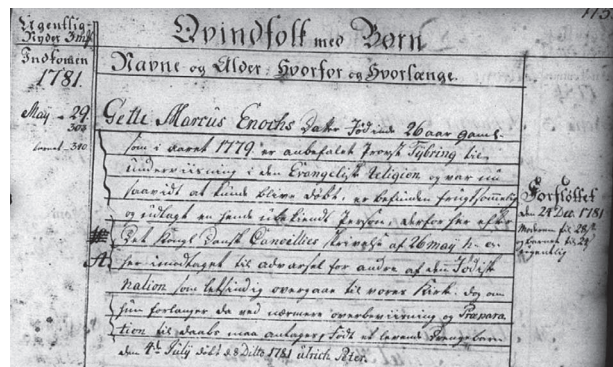 113
Ugentlig-
Nyder 3 mk
Indkomen
1781.
Qvindfolk med Børn
Navne og Alder: Hvorfor og Hvorlænge.
May - 29.
303
barnet - 310
Gette Marcus Enochs Dater Jødinde 26 aar gaml.
som i aaret 1779 er anbefalet Provst Tybring til
underviisning i den Evangeliske Religion og var nu
saavidt at kunde blive døbt, er befunden frugtsommelig
og udlagt en hende ubekiendt Person, derfor her efter
Det Kongl Dansk Cancellies skrivelse af 26 may h. a.
her imodtaget til advarsel for andre af den Jødisk
Nation som letsindig overgaae til vores Kirk. dog om
hun forlanger da ved nærmere overbeviisning og Præpara-
tion til daabe maa antages, Født et levende Drengebarn
den 4de July døbt d. 8 Ditto 1781 Ulrich Peter.
A
Forflöttet
den 24 Dec. 1781
Moderen til 28 s
og barnet til 24
ugentlig